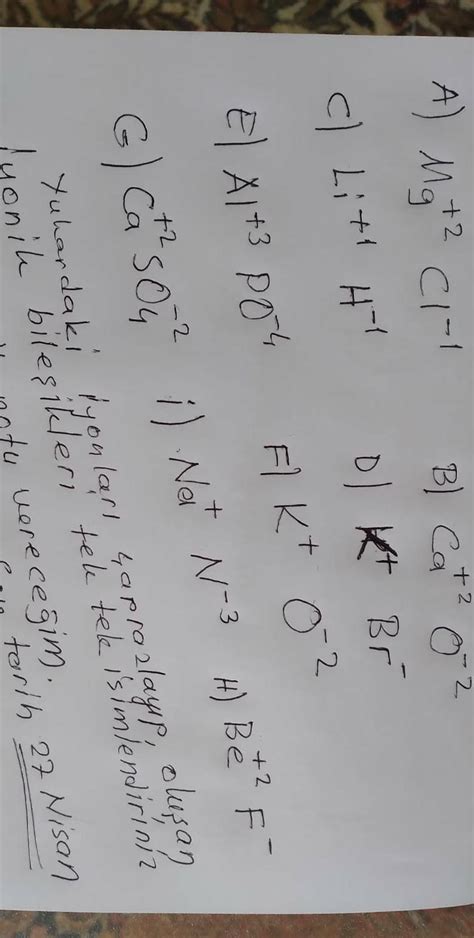 A) Mg⁺² Cl⁻¹ B) Ca⁺² O⁻²
C) Li⁺¹ H⁻¹ D) K⁺ Br⁻
E) Al⁺³ PO⁻⁴ F) K⁺ O⁻²
G) Ca⁺² SO₄⁻² i) Na⁺ N⁻³ H) Be⁺² F⁻
Yukardaki iyonları çaprozlayıp, oluşan
iyonik bileşikleri tek tek isimlendiriniz
notu vereceğim.
tarih 27 Nisan